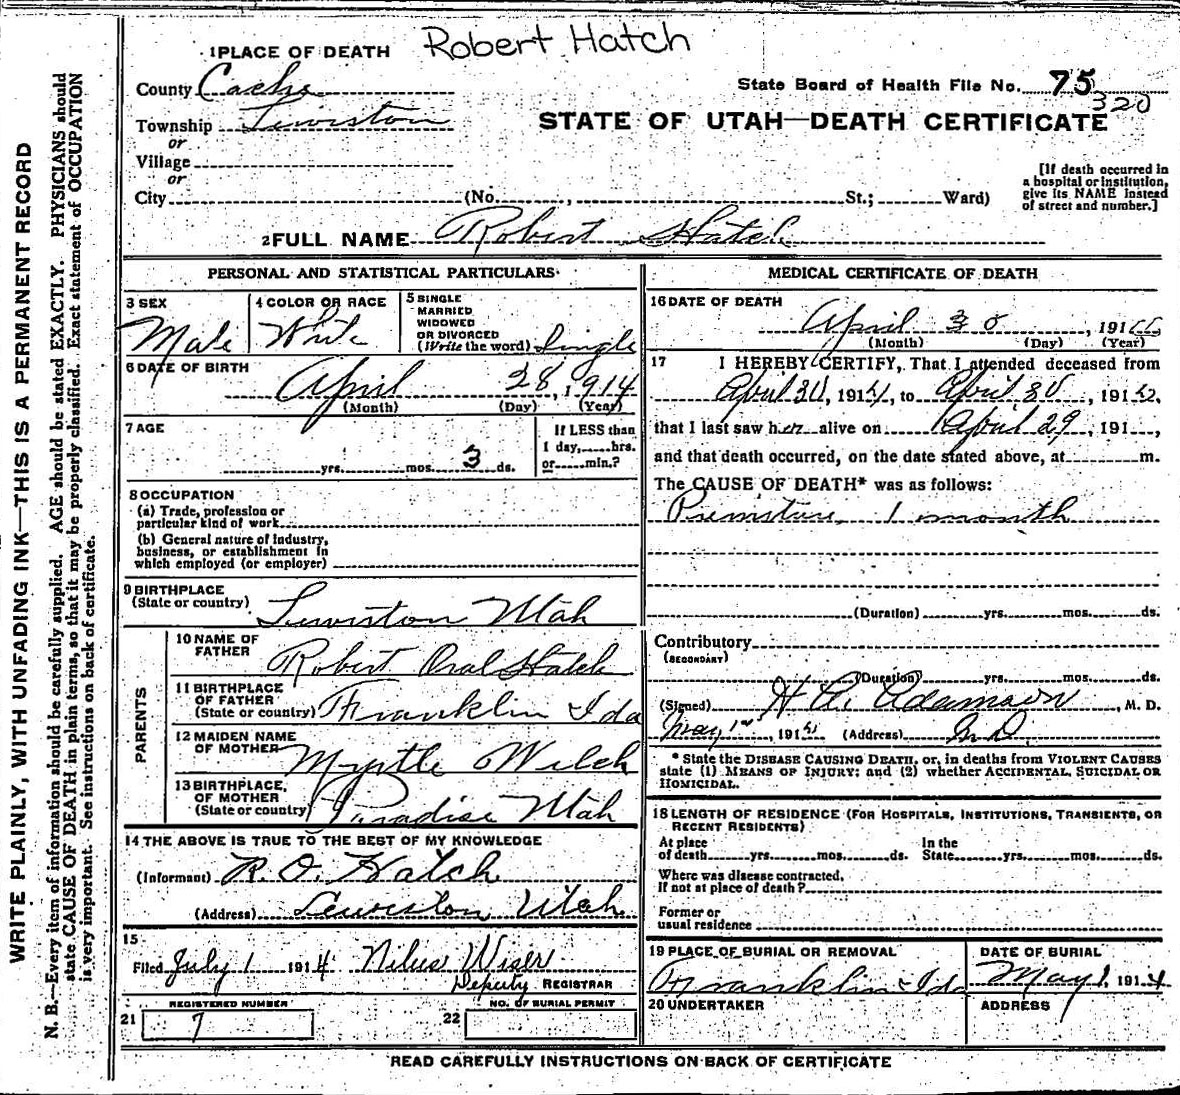 Robert Hatch
1 PLACE OF DEATH
County Cache
State Board of Health File No. 75
320
Township Lewiston
STATE OF UTAH—DEATH CERTIFICATE
or
Village
or
City (No. , St.; Ward)
[If death occurred in
a hospital or institution,
give its NAME instead
of street and number.]
2 FULL NAME Robert Hatch
PERSONAL AND STATISTICAL PARTICULARS
3 SEX
Male
4 COLOR OR RACE
White
5 SINGLE
MARRIED
WIDOWED
OR DIVORCED
(Write the word) Single
6 DATE OF BIRTH
April 28, 1914
(Month) (Day) (Year)
7 AGE
yrs. mos. 3 ds.
If LESS than
1 day, hrs.
or min.?
8 OCCUPATION
(a) Trade, profession or
particular kind of work
(b) General nature of industry,
business, or establishment in
which employed (or employer)
9 BIRTHPLACE
(State or country) Lewiston Utah
PARENTS
10 NAME OF
FATHER Robert Oral Hatch
11 BIRTHPLACE
OF FATHER
(State or country) Franklin Ida
12 MAIDEN NAME
OF MOTHER Myrtle Welch
13 BIRTHPLACE
OF MOTHER
(State or country) Paradise Utah
14 THE ABOVE IS TRUE TO THE BEST OF MY KNOWLEDGE
(Informant) R. O. Hatch
(Address) Lewiston Utah
15
Filed July 1 1914 Nilus Wiser
Deputy REGISTRAR
REGISTERED NUMBER
21 7
NO. OF BURIAL PERMIT
22
MEDICAL CERTIFICATE OF DEATH
16 DATE OF DEATH
April 30, 191
(Month) (Day) (Year)
17 I HEREBY CERTIFY, That I attended deceased from
April , 191 , to April 30, 191 ,
that I last saw her alive on April 29, 191 ,
and that death occurred, on the date stated above, at m.
The CAUSE OF DEATH* was as follows:
Premature 1 month
(Duration) yrs. mos. ds.
Contributory
(SECONDARY)
(Duration) yrs. mos. ds.
(Signed) H A Adamson, M. D.
May 1st, 191 (Address) M. D.
* State the DISEASE CAUSING DEATH, or, in deaths from VIOLENT CAUSES
state (1) MEANS OF INJURY; and (2) whether ACCIDENTAL, SUICIDAL OR
HOMICIDAL.
18 LENGTH OF RESIDENCE (FOR HOSPITALS, INSTITUTIONS, TRANSIENTS, OR
RECENT RESIDENTS)
At place In the
of death yrs. mos. ds. State yrs. mos. ds.
Where was disease contracted,
if not at place of death?
Former or
usual residence
19 PLACE OF BURIAL OR REMOVAL
Franklin Ida
DATE OF BURIAL
May 1, 1914
20 UNDERTAKER
ADDRESS
READ CAREFULLY INSTRUCTIONS ON BACK OF CERTIFICATE
WRITE PLAINLY, WITH UNFADING INK—THIS IS A PERMANENT RECORD
N. B.—Every item of information should be carefully supplied. AGE should be stated EXACTLY. PHYSICIANS should
state CAUSE OF DEATH in plain terms, so that it may be properly classified. Exact statement of OCCUPATION
is very important. See instructions on back of certificate.